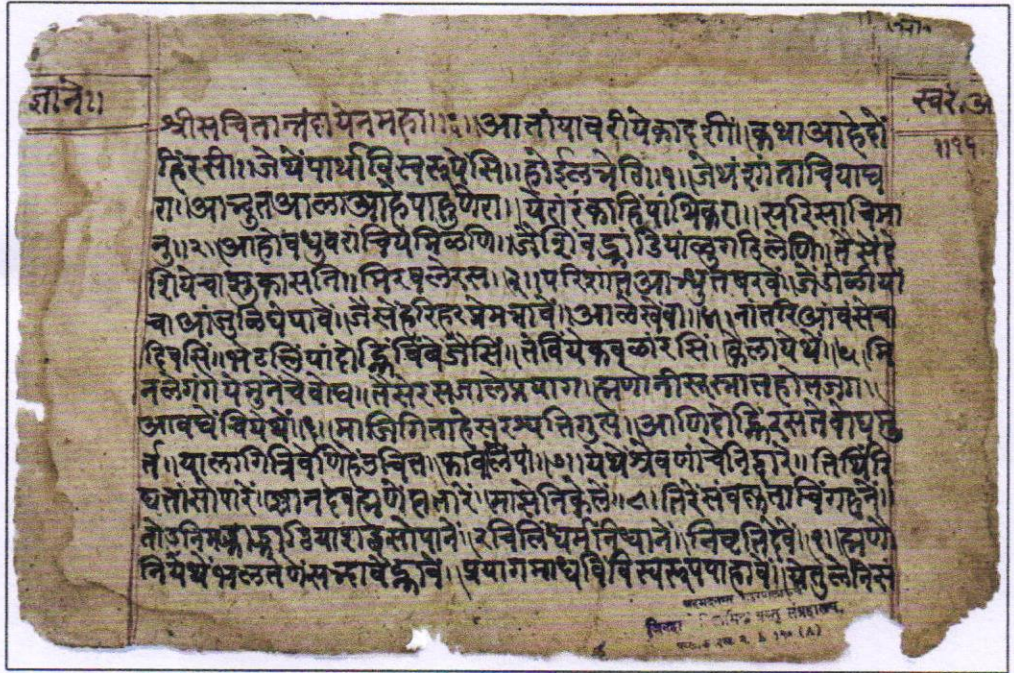 ज्ञाने॥
स्वर.अ
॥११
श्रीसचितान्तंदायेनमहा॥६॥आतांयावरीयेकादशीं॥कथाआहेदों
हिंरसीं॥जेथेंपार्थाविस्वरूपेंसि॥होईलन्नेति॥१॥जेथंशांताचियाघ
रा॥आन्तुतआलाआहेपाहुणेरा॥येरांरंकाहिंपांभिकरा॥सरिसाचिमा
नु॥२॥आहोवधुवरांचियेमिळणि॥जैशिवर्‍हाडियांळुगडिलेणि॥तैसेदे
शियेचासुकासनि॥मिरवलेरस॥३॥परिशांतआश्रुतबरवें॥जेंडोळीयां
चाआंजुळिंघेंयावें॥जैसेंहरिहरप्रेमभावें॥आलेखेंवा॥४॥नांतरिआवंसेचा
दिवसिं॥भेटलिंयांदोन्हिंबिंबेंजैसिं॥तेविंयेकवळांरसिं॥केलायेथें॥५॥मि
नलेगंगेयेमुनेचेवोघ॥तैसेरसजालेप्रयाग॥ह्मणोनीसुस्नातहोतजग॥
आवघेंचियेथें॥६॥माजिगिताहेसरश्वतिगुप्त॥आणिदोन्हिंरसतेवोघमु
र्त॥यालागित्रिवेणिहेउचित॥फावलिबापा॥७॥येथेंश्रवणांचेनिद्वारें॥तिर्थिंरि
घतांसोपारें॥ज्ञानदेवह्मणेदातारें॥माझेनिकेलें॥८॥तिरेंसंवस्कृताचिंगहनें॥
तोडुनिमर्‍हाठियांशब्दसोपानें॥रचिलिधर्मनिधानें॥निवृत्तिदेवें॥९॥ह्मणौ
नियेथेंभलतेणेंसन्हावेंन्हावें॥प्रयागमाधवविस्वरूपपाहावें॥येतुलेनिसं